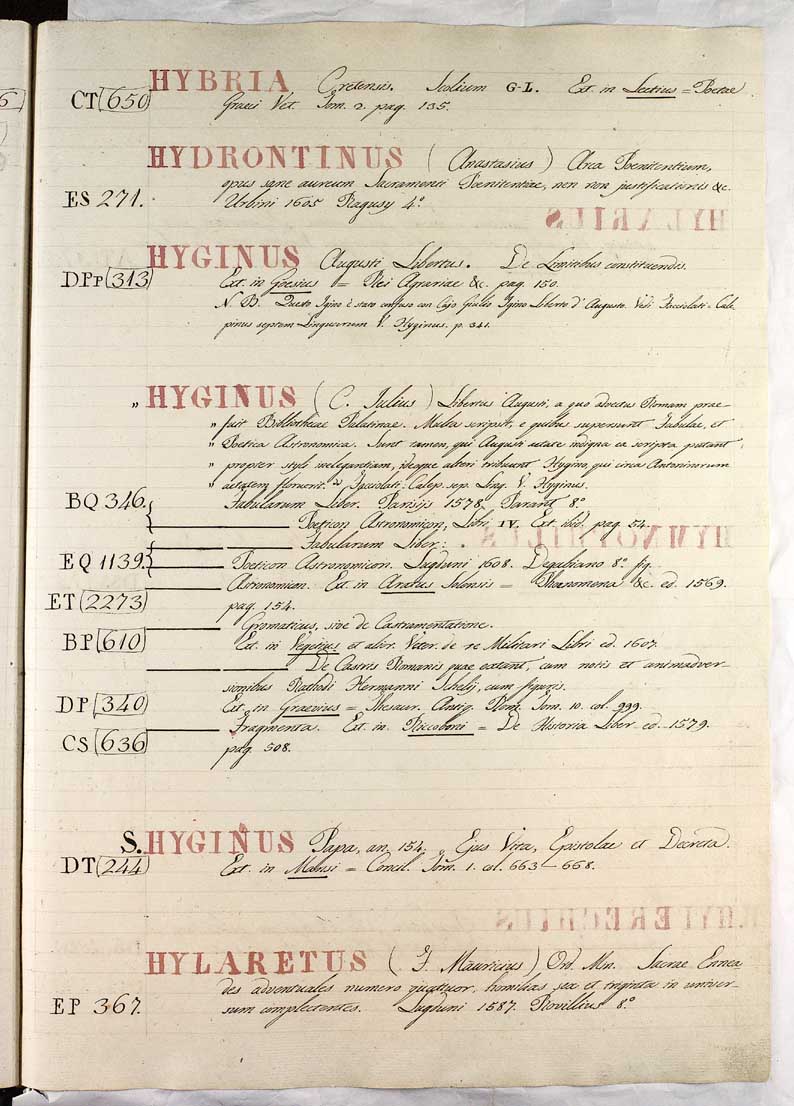 HYBRIA Cretensis. Scolium G-L. Ext. in Lectius = Poetae
CT 650 Graeci Vet. Tom. 2. pag. 135.
HYDRONTINUS ( Anastasius ) Arca Poenitentium,
opus sane aureum Sacramenti Poenitentiae, nec non justificationis &c.
ES 271. Urbini 1605 Ragusy 4.°
HYGINUS Augusti Libertus. De Limitibus constituendis.
DPp 313 Ext. in Goesius = Rei Agrariae &c. pag. 150.
N. B. Questo Igino è stato confuso con Cajo Giulio Igino Liberto d'Augusto. Vedi Facciolati = Cale-
pinus septem Linguarum V. Hyginus. p. 341.
„ HYGINUS ( C. Julius ) Libertus Augusti, a quo advectus Romam prae-
„ fuit Bibliothecae Palatinae. Multa scripsit, e quibus supersunt Fabulae, et
„ Poetica Astronomica. Sunt tamen, qui Augusti aetate indigna ea scripta putant
„ propter styli inelegantiam, ideoque alteri tribuunt Hygino, qui circa Antoninorum
„ aetatem floruerit. Facciolati. Calep. sep. Ling. V. Hyginus.
BQ 346. Fabularum Liber. Parisijs 1578. Parant 8.°
Poeticon Astronomicon, Libri IV. Ext. ibid. pag. 54.
Fabularum Liber.
EQ 1139. Poeticon Astronomicon. Lugduni 1608. Degabiano 8.° fig.
Astronomicon. Ext. in Aratus Solensis = Phaenomena &c. ed. 1569.
ET 2273 pag. 154.
Gromaticus, sive de Castrametatione.
BP 610 Ext. in Vegetius et alior. Veter. de re Militari Libri ed. 1607.
De Castris Romanis quae extant, cum notis et animadver-
sionibus Rathodi Hermanni Schelij, cum figuris.
DP 340 Ext. in Graevius = Thesaur. Antiq. Rom. Tom. 10. col. 999.
Fragmenta. Ext. in Riccoboni = De Historia Liber ed. 1579.
CS 636 pag. 508.
S. HYGINUS Papa, an. 154. Ejus Vita, Epistolae et Decreta.
DT 244 Ext. in Mansi = Concil. Tom. 1. col. 663 - 668.
HYLARETUS ( F. Mauricius ) Ord. Min. Sacrae Ennea
des adventuales numero quatuor, homilias sex et triginta in univer-
EP 367. sum complectentes. Lugduni 1587. Rovillius 8.°